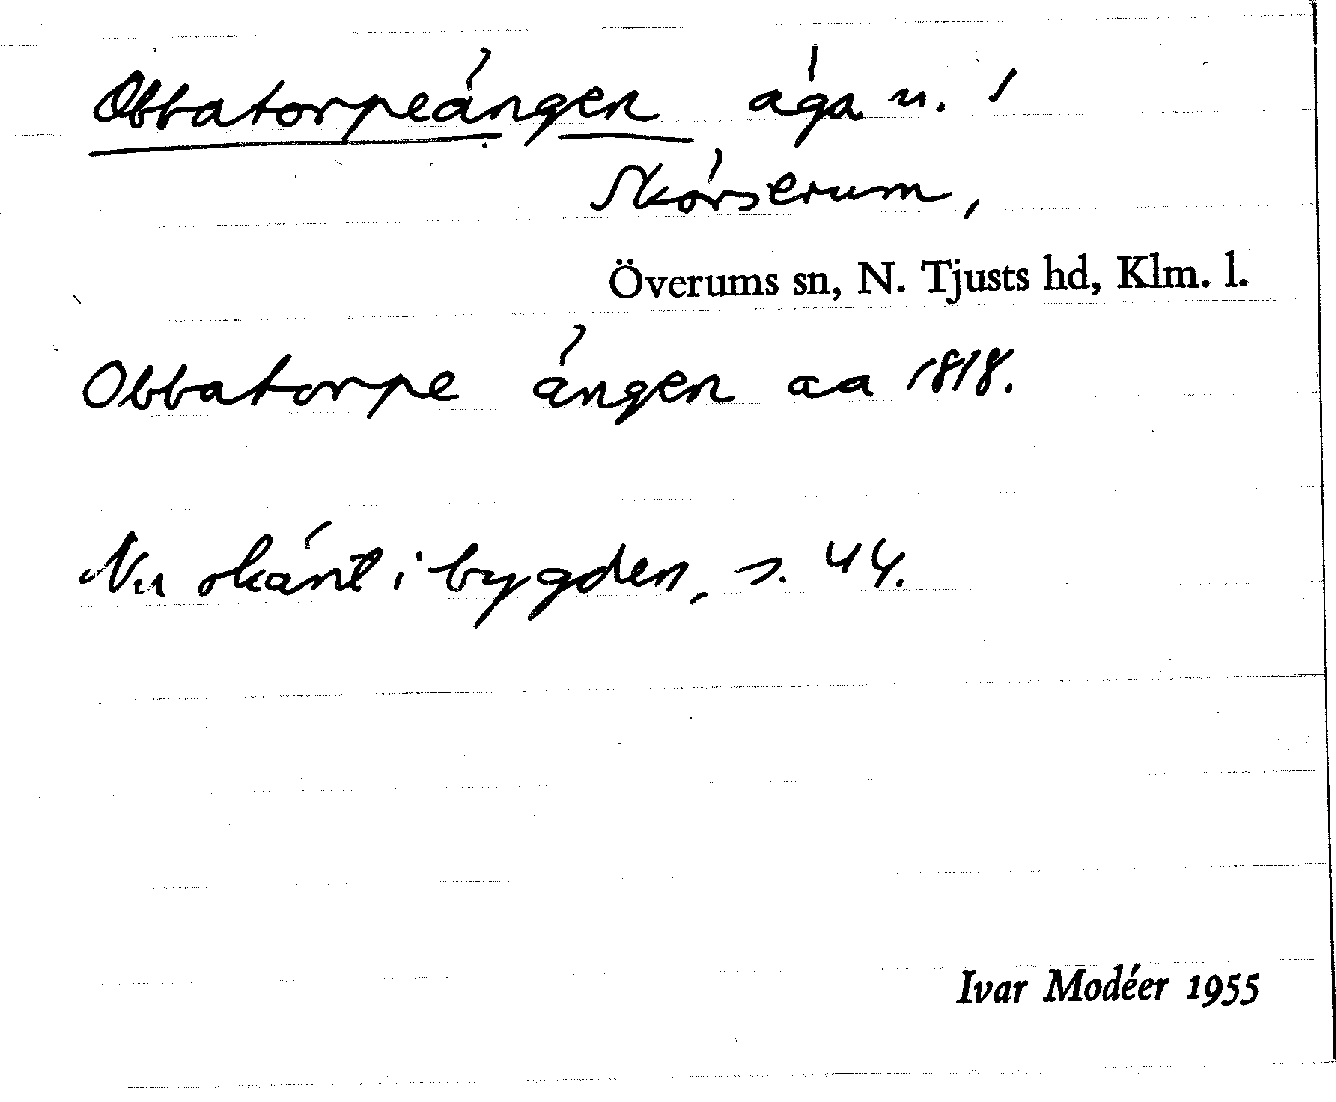 Obbatorpeängen äga u. 1
Skörserum,
Överums sn, N. Tjusts hd, Klm. l.
Obbatorpe ängen aa 1818.
Nu okänt i bygden, s. 44.
Ivar Modéer 1955